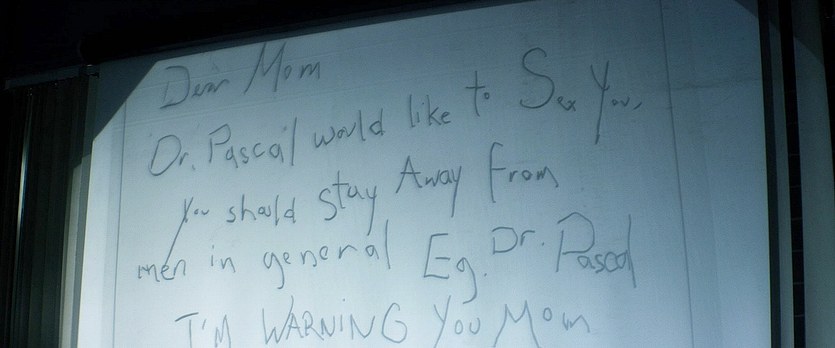 Dear Mom
Dr. Pascal would like to Sex You,
You should Stay Away From
men in general Eg. Dr. Pascal
I'M WARNING YOU MOM